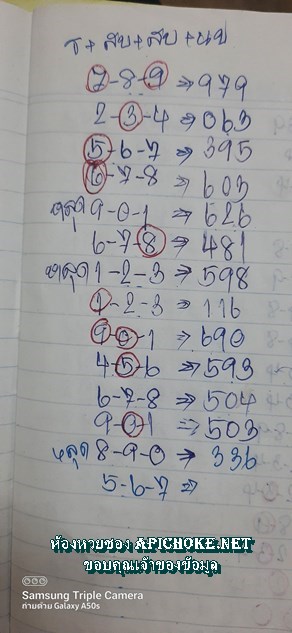 ร + สิบ + สิบ + นบ
7-8-9 ⇒ 979
2-3-4 ⇒ 063
5-6-7 ⇒ 395
6-7-8 ⇒ 603
หลุด 9-0-1 ⇒ 626
6-7-8 ⇒ 481
หลุด 1-2-3 ⇒ 598
1-2-3 ⇒ 116
9-0-1 ⇒ 690
4-5-6 ⇒ 593
6-7-8 ⇒ 504
9-0-1 ⇒ 503
หลุด 8-9-0 ⇒ 336
5-6-7 ⇒
ห้องหวยซอง APICHOKE.NET
ขอบคุณเจ้าของข้อมูล
Samsung Triple Camera
ถ่ายด้วย Galaxy A50s